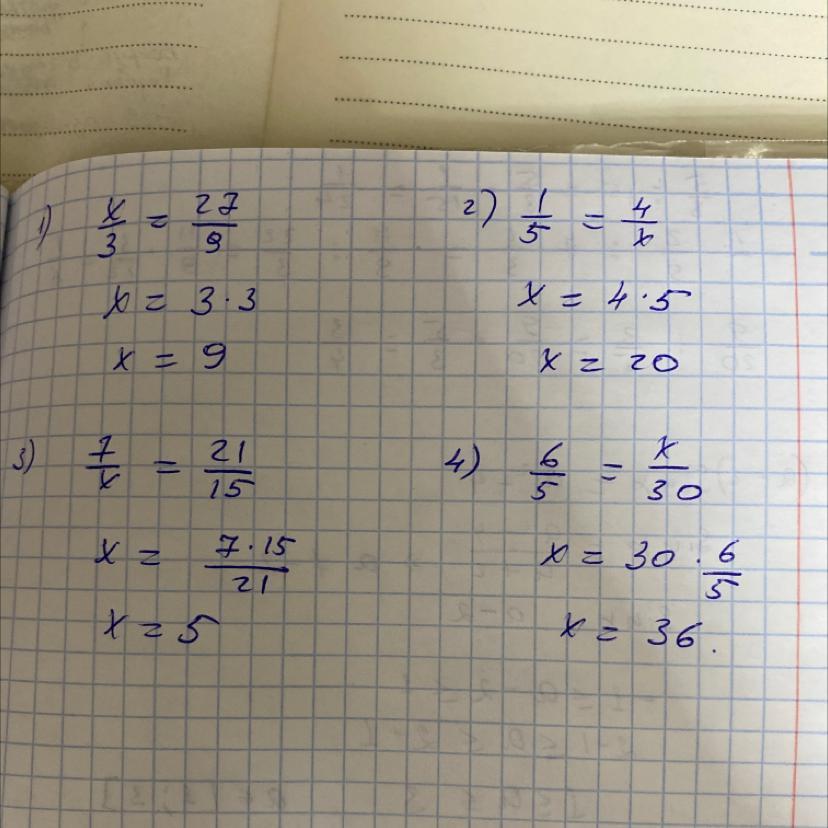 1) x/3 = 27/9
x = 3·3
x = 9
2) 1/5 = 4/x
x = 4·5
x = 20
3) 7/x = 21/15
x = 7·15/21
x = 5
4) 6/5 = x/30
x = 30 · 6/5
x = 36.